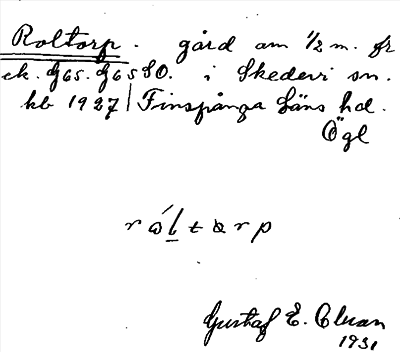 Roltorp. gård om 1/2 m. fr
ek. G65. G65SO. i Skedevi sn.
kb 1927 | Finspånga läns hd.
Ögl
Gustaf E. Cluan
1931